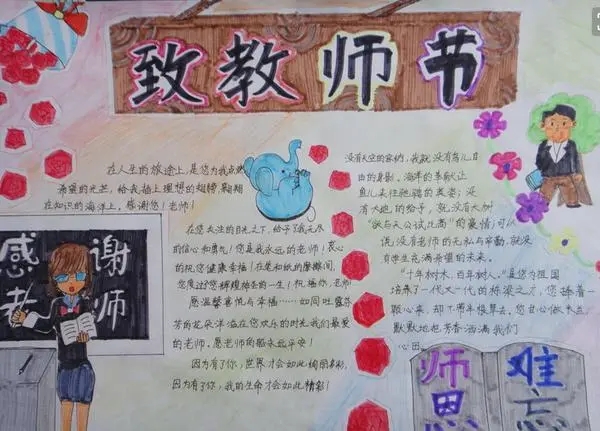 致教师节
在人生的旅途上,是您为我点燃
希望的光芒,给我插上理想的翅膀,翱翔
在知识的海洋上。感谢您!老师!
在您关注的目光之下,给予了我无尽
的信心和勇气!您是我永远的老师!衷心
的祝您健康幸福!在笔和纸的摩擦间,
您度过了您辉煌神圣的一生!祝福你,老师!
愿温馨喜悦与幸福……如同吐露芬
芳的花朵洋溢在您欢乐的时光我们最爱
的老师。愿老师的永远平安!
因为有了你,世界才会如此绚丽多彩,
因为有了你,我的生命才会如此精彩!
感谢
老师
没有天空的容纳,我就没有鸟儿自
由的身影。海洋的奉献让
鱼儿来往驰骋的英姿;没
有大地的给予,就没有大树
“欲与天公试比高”的豪情;可以
说,没有老师的无私与帮助,就没
有学生充满希望的未来。
“十年树木,百年树人。”是您为祖国
培养了一代又一代的栋梁之才,您捧着一
颗心来,却不带半根草去。您甘心做
默默地把芳香洒满我们
心田。
师恩
难忘